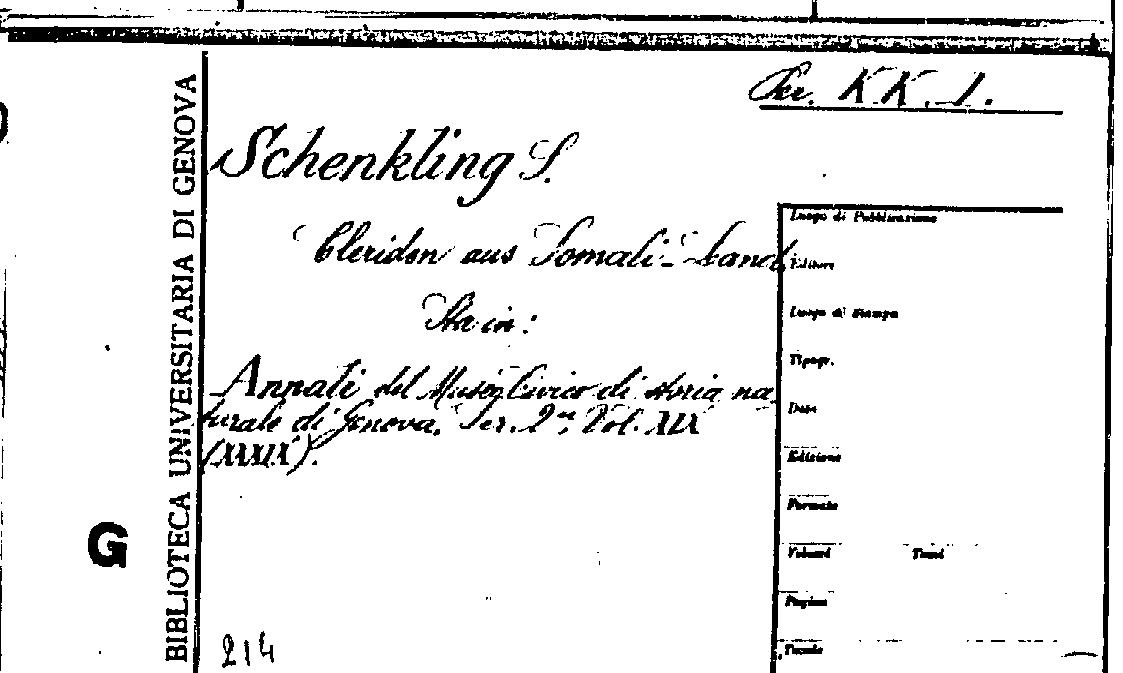 Per. KK. I.
BIBLIOTECA UNIVERSITARIA DI GENOVA
Schenkling S.
Cleriden aus Somali-Land
Sta in:
Annali del Museo Civico di storia na
turale di Genova, Ser. 2ª, Vol. XIX
(XXXIX).
Luogo di Pubblicazione
Editore
Luogo di Stampa
Tipogr.
Data
Edizione
Formato
Volumi Tomi
Pagine
Tavole
G
214